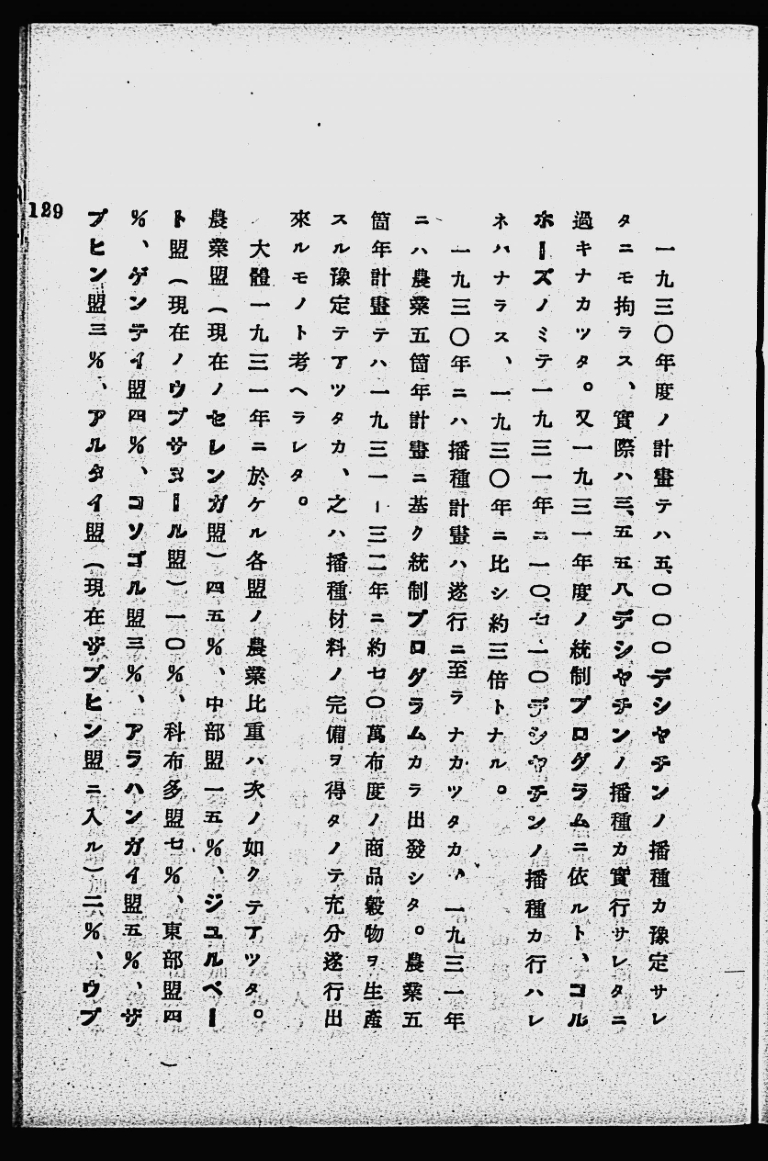 一九三〇年度ノ計畫テハ五、〇〇〇デシヤチンノ播種カ豫定サレ
タニモ拘ラス、實際ハ三、五五八デシヤチンノ播種カ實行サレタニ
過キナカツタ。又一九三一年度ノ統制プログラムニ依ルト、コル
ホーズノミテ一九三一年ニ一〇、七一〇デシヤチンノ播種カ行ハレ
ネハナラス、一九三〇年ニ比シ約三倍トナル。
一九三〇年ニハ播種計畫ハ遂行ニ至ラナカツタカ、一九三一年
ニハ農業五箇年計畫ニ基ク統制プログラムカラ出發シタ。農業五
箇年計畫テハ一九三一ー三二年ニ約七〇萬布度ノ商品穀物ヲ生產
スル豫定テアツタカ、之ハ播種材料ノ完備ヲ得タノテ充分遂行出
來ルモノト考ヘラレタ。
大體一九三一年ニ於ケル各盟ノ農業比重ハ次ノ如クテアツタ。
農業盟(現在ノセレンガ盟)四五%、中部盟一五%、ジユルベー
ト盟(現在ノウブサヌール盟)一〇%、科布多盟七%、東部盟四
%、ゲンテイ盟四%、コソゴル盟三%、アラハンガイ盟五%、ザ
プヒン盟三%、アルタイ盟(現在ザプヒン盟ニ入ル)二%、ウブ
129